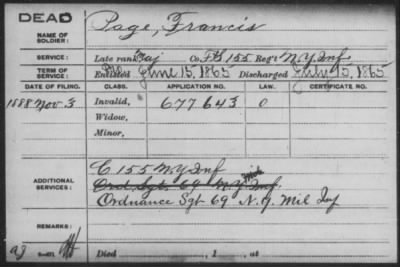 DEAD
NAME OF SOLDIER: Page, Francis
SERVICE: Late rank Maj Co. F&S 155 Reg't N.Y. Inf
TERM OF SERVICE: Enlisted June 15, 1865 Discharged July 15, 1865
DATE OF FILING. CLASS. APPLICATION NO. LAW. CERTIFICATE NO.
1888 Nov. 3 Invalid, 677643 O
Widow,
Minor,
C 155 N.Y. Inf
ADDITIONAL SERVICES: Ord Sgt 69 N.Y. Inf.
Ordnance Sgt 69 N.Y. Mil Inf
REMARKS:
Died , 1 , at